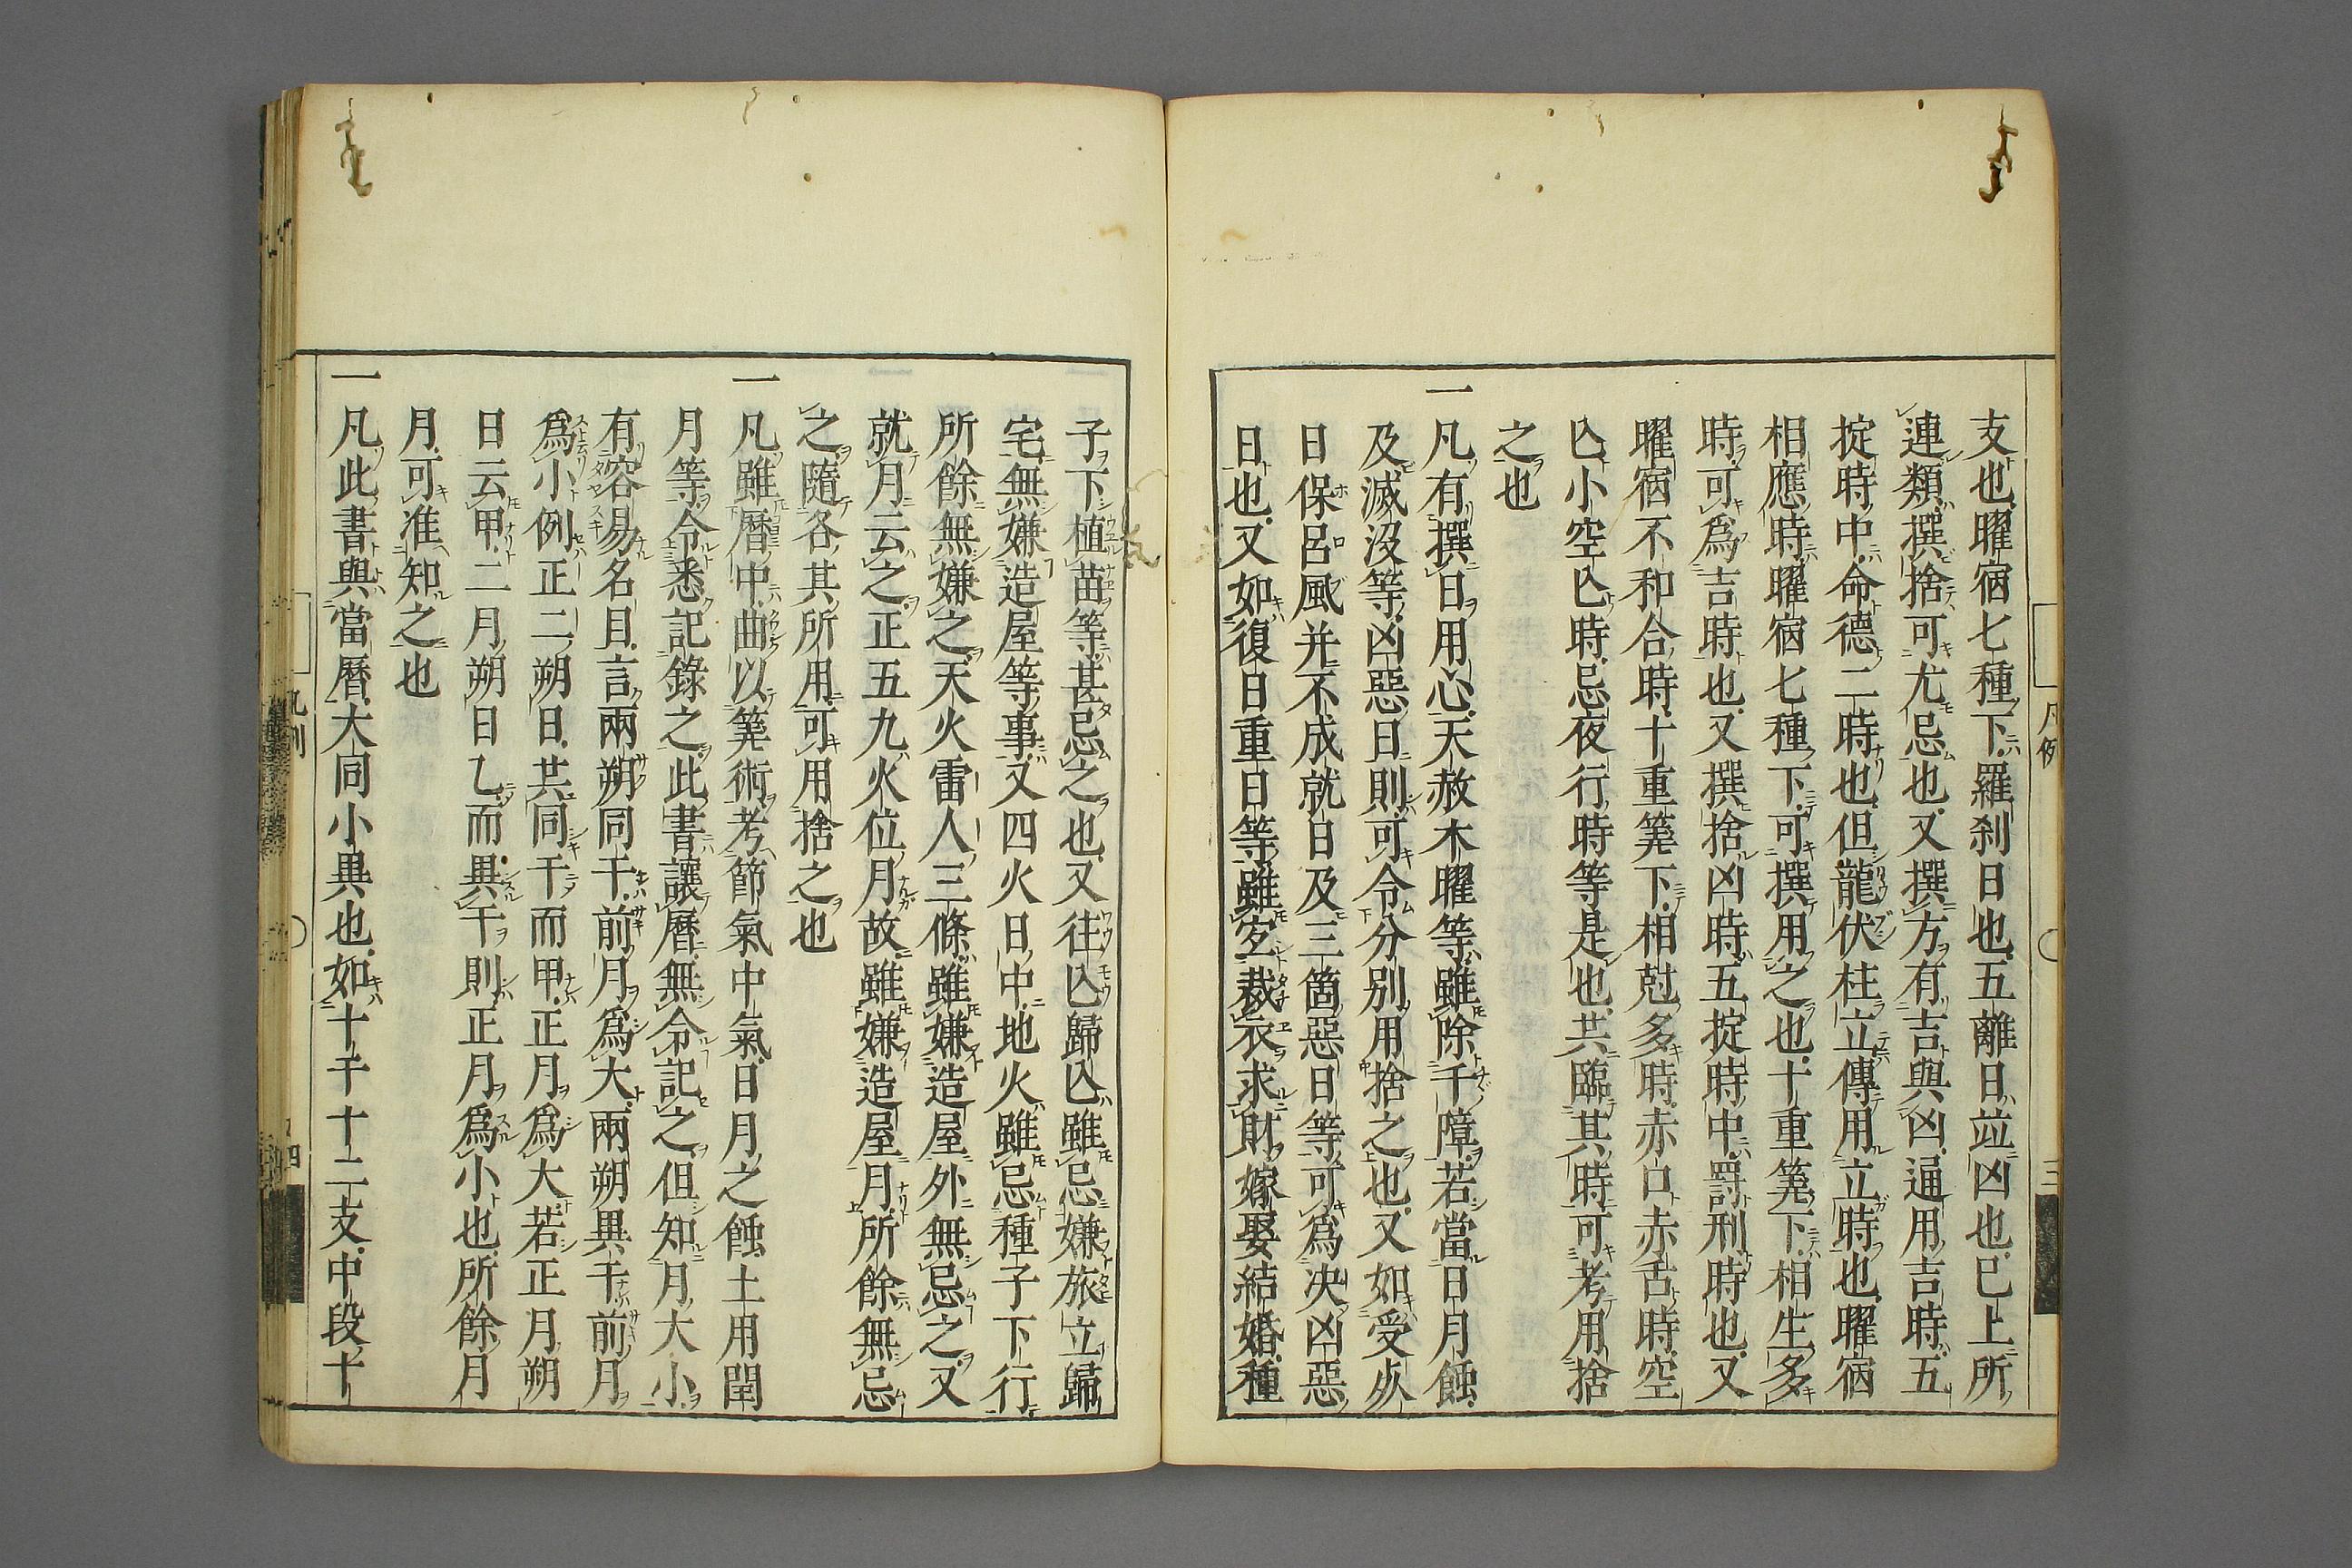 支也曜宿七種下羅刹日也五離日竝凶也已上所
連類撰捨可尤忌也又撰方有吉與凶逼用吉時五
掟時中命德二時也但龍伏柱立傳用立時也曜宿
相應時曜宿七種下可撰用之也十重筭下相生多
時可爲吉時也又撰捨凶時五掟時中罸刑時也又
曜宿不和合時十重筭下相尅多時赤口赤舌時空
亾小空亾時忌夜行時等是也共臨其時可考用捨
之也
一凡有撰日用心天赦木曜等雖除千障若當日月蝕
及滅没等凶惡日則可令分別用捨之也又如受灸
日保呂風并不成就日及三箇惡日等可爲决凶惡
日也又如復日重日等雖定裁衣求財嫁娶結婚種
凡例
三
子下植苗等甚忌之也又往亾歸亾雖忌嫌旅立歸
宅無嫌造屋等事又四火日中地火雖忌種子下行
所餘無嫌之天火雷人三條雖嫌造屋外無忌之又
就月云之正五九火位月故雖嫌造屋月所餘無忌
之隨各其所用可用捨之也
一凡雖曆中曲以筭術考節氣中氣日月之蝕土用閏
月等令悉記錄之此書讓曆無令記之但知月大小
有容易名目言兩朔同干前月爲大兩朔異干前月
爲小例正二朔日共同干而甲正月爲大若正月朔
日云甲二月朔日乙而異干則正月爲小也所餘月
月可准知之也
一凡此書與當曆大同小異也如十干十二支中段十
凡例
四